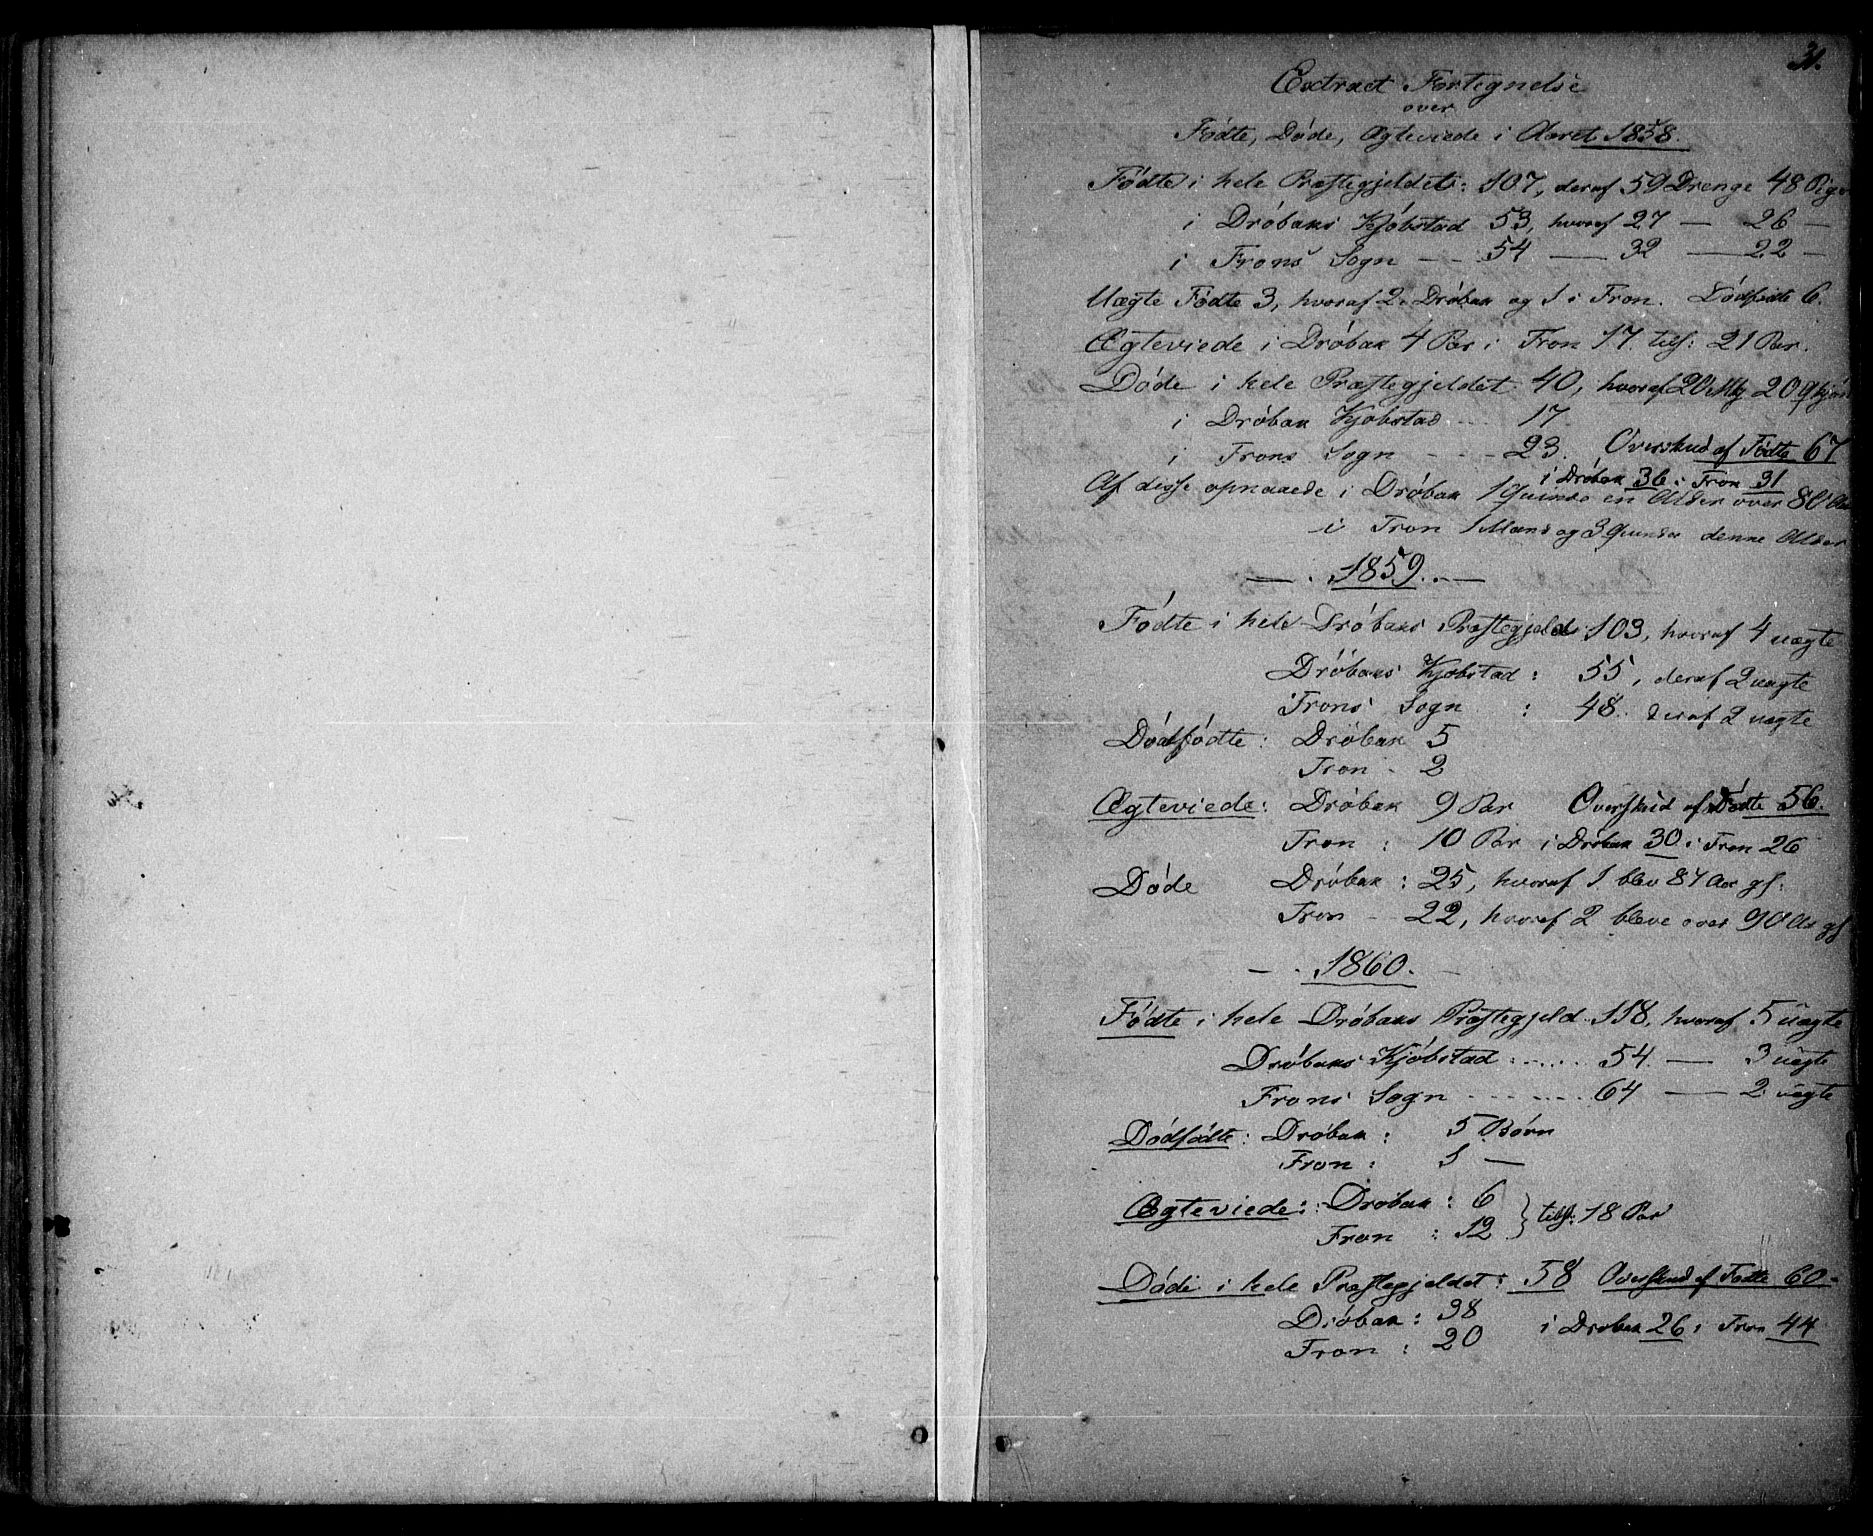 31.
Extract Fortegnelse
over
Fødte, Døde, Ægteviede i Aaret 1858.
Fødte i hele Præstegjeldet: 107, deraf 59 Drenge 48 Piger
i Drøbaks Kjøbstad 53, hvoraf 27 — 26 —
i Frons Sogn — 54 — 32 — 22 —
Uægte Fødte 3, hvoraf 2 Drøbak og 1 i Fron. Dødfødte 6.
Ægteviede i Drøbak 4 Par i Fron 17. tils: 21 Par.
Døde i hele Præstegjeldet 40, hvoraf 20 Mkj 20 Qkjøn
i Drøbak Kjøbstad --- 17.
i Frons Sogn - - - 23. Overskud af Fødte 67
i Drøbak 36 i Fron 31
Af disse opnaaede i Drøbak 1 Quinde en Alder over 80 Aar
i Fron 1 Mand og 3 Quinder denne Alder
— . 1859. . —
Fødte i hele Drøbaks Præstegjeld: 103, hvoraf 4 uægte
Drøbaks Kjøbstad : 55, deraf 2 uægte
Frons Sogn : 48. deraf 2 uægte
Dødfødte: Drøbak 5
Fron - 2
Ægteviede: Drøbak 9 Par Overskud af Fødte 56.
Fron : 10 Par i Drøbak 30 i Fron 26
Døde Drøbak : 25, hvoraf 1 blev 87 Aar gl:
Fron - 22, hvoraf 2 bleve over 90 Aar gl
— . 1860. —
Fødte i hele Drøbaks Præstegjeld 118, hvoraf 5 uægte
Drøbaks Kjøbstad : ..... 54. — 3 uægte
Frons Sogn ------- 64 — 2 uægte
Dødfødte: Drøbak : 5 Børn
Fron : 1 —
Ægteviede: Drøbak : 6
Fron : 12 } tils: 18 Par
Døde i hele Præstegjeldet: 58 Overskud af Fødte 60-
Drøbak : 38
i Drøbak 26 i Fron 44
Fron : 20